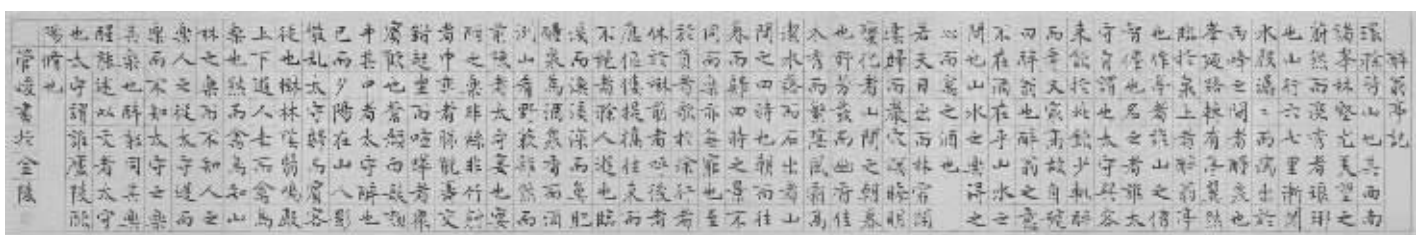 醉翁亭記
環滁皆山也其西南
諸峰林壑尤美望之
蔚然而深秀者琅琊
也山行六七里漸聞
水聲潺潺而瀉出於
兩峰之間者釀泉也
峰回路轉有亭翼然
臨於泉上者醉翁亭
也作亭者誰山之僧
智僊也名之者誰太
守自謂也太守與客
來飲於此飲少輒醉
而年又最高故自號
曰醉翁也醉翁之意
不在酒在乎山水之
間也山水之樂得之
心而寓之酒也
若夫日出而林霏開
雲歸而巖穴暝晦明
變化者山間之朝暮
也野芳發而幽香佳
木秀而繁陰風霜高
潔水落而石出者山
間之四時也朝而往
暮而歸四時之景不
同而樂亦無窮也至
於負者歌於途行者
休於樹前者呼後者
應傴僂提攜往來而
不絕者滁人遊也臨
溪而漁溪深而魚肥
釀泉為酒泉香而酒
洌山肴野蔌雜然而
前陳者太守宴也宴
酣之樂非絲非竹射
者中弈者勝觥籌交
錯起坐而喧嘩者眾
賓歡也蒼顏白髮頹
乎其中者太守醉也
已而夕陽在山人影
散亂太守歸而賓客
從也樹林陰翳鳴聲
上下遊人去而禽鳥
樂也然而禽鳥知山
林之樂而不知人之
樂人知從太守遊而
樂而不知太守之樂
其樂也醉能同其樂
醒能述以文者太守
也太守謂誰廬陵歐
陽修也
管峻書於金陵